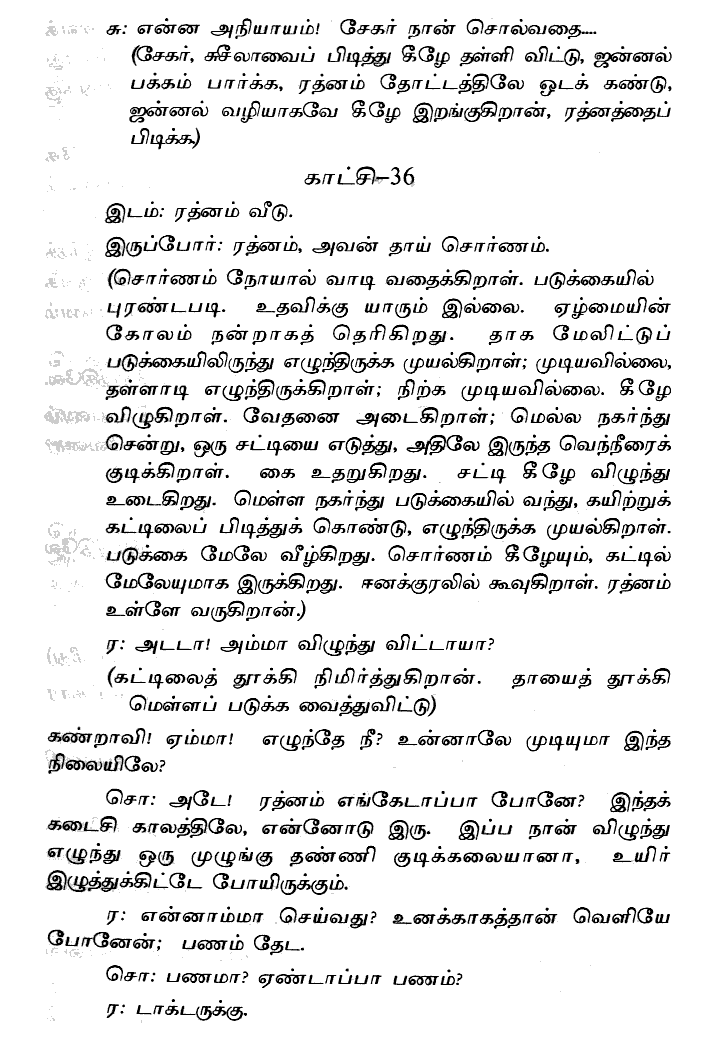 சு: என்ன அநியாயம்! சேகர் நான் சொல்வதை....
(சேகர், சுசீலாவைப் பிடித்து கீழே தள்ளி விட்டு, ஜன்னல்
பக்கம் பார்க்க, ரத்னம் தோட்டத்திலே ஓடக் கண்டு,
ஜன்னல் வழியாகவே கீழே இறங்குகிறான், ரத்னத்தைப்
பிடிக்க.)
காட்சி-36
இடம்: ரத்னம் வீடு.
இருப்போர்: ரத்னம், அவன் தாய் சொர்ணம்.
(சொர்ணம் நோயால் வாடி வதைக்கிறாள். படுக்கையில்
புரண்டபடி. உதவிக்கு யாரும் இல்லை. ஏழ்மையின்
கோலம் நன்றாகத் தெரிகிறது. தாக மேலிட்டுப்
படுக்கையிலிருந்து எழுந்திருக்க முயல்கிறாள்; முடியவில்லை,
தள்ளாடி எழுந்திருக்கிறாள்; நிற்க முடியவில்லை. கீழே
விழுகிறாள். வேதனை அடைகிறாள்; மெல்ல நகர்ந்து
சென்று, ஒரு சட்டியை எடுத்து, அதிலே இருந்த வெந்நீரைக்
குடிக்கிறாள். கை உதறுகிறது. சட்டி கீழே விழுந்து
உடைகிறது. மெள்ள நகர்ந்து படுக்கையில் வந்து, கயிற்றுக்
கட்டிலைப் பிடித்துக் கொண்டு, எழுந்திருக்க முயல்கிறாள்.
படுக்கை மேலே வீழ்கிறது. சொர்ணம் கீழேயும், கட்டில்
மேலேயுமாக இருக்கிறது. ஈனக்குரலில் கூவுகிறாள். ரத்னம்
உள்ளே வருகிறான்.)
ர: அடடா! அம்மா விழுந்து விட்டாயா?
(கட்டிலைத் தூக்கி நிமிர்த்துகிறான். தாயைத் தூக்கி
மெள்ளப் படுக்க வைத்துவிட்டு)
கண்றாவி! ஏம்மா! எழுந்தே நீ? உன்னாலே முடியுமா இந்த
நிலையிலே?
சொ: அடே! ரத்னம் எங்கேடாப்பா போனே? இந்தக்
கடைசி காலத்திலே, என்னோடு இரு. இப்ப நான் விழுந்து
எழுந்து ஒரு முழுங்கு தண்ணி குடிக்கலையானா, உயிர்
இழுத்துக்கிட்டே போயிருக்கும்.
ர: என்னாம்மா செய்வது? உனக்காகத்தான் வெளியே
போனேன்; பணம் தேட.
சொ: பணமா? ஏண்டாப்பா பணம்?
ர: டாக்டருக்கு.